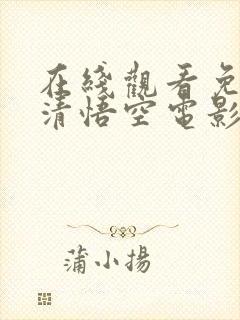 在綫觀看免
清悟空電影
蒲小揚